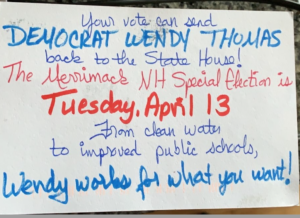 Your vote can send
DEMOCRAT WENDY THOMAS
back to the State House!
The Merrimack NH Special Election is
Tuesday, April 13
From clean water
to improved public schools,
Wendy works for what you want!